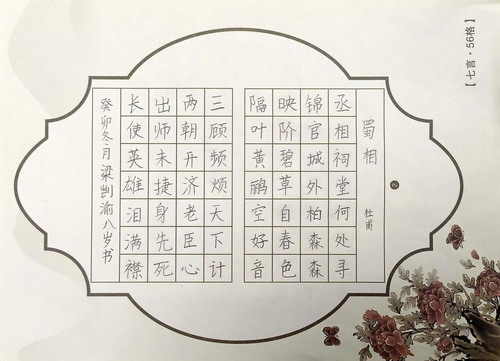 【七言·56格】
蜀相
杜甫
丞相祠堂何处寻
锦官城外柏森森
映阶碧草自春色
隔叶黄鹂空好音
三顾频烦天下计
两朝开济老臣心
出师未捷身先死
长使英雄泪满襟
癸卯冬月梁凯渝八岁书